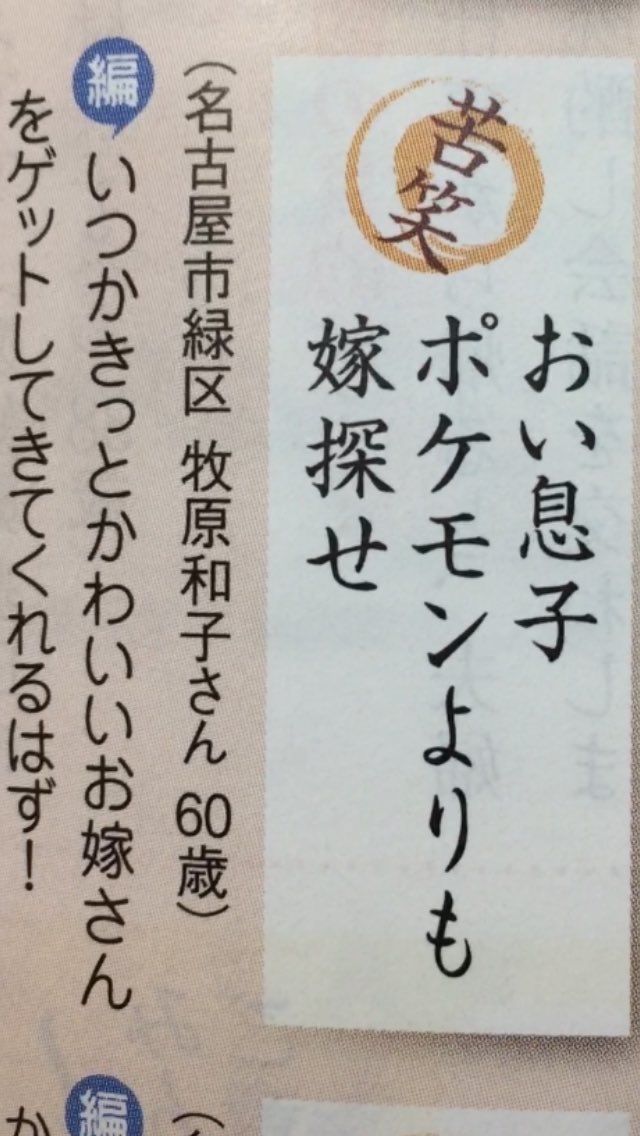 苦笑
おい息子
ポケモンよりも
嫁探せ
（名古屋市緑区 牧原和子さん 60歳）
編 いつかきっとかわいいお嫁さん
をゲットしてきてくれるはず！
編